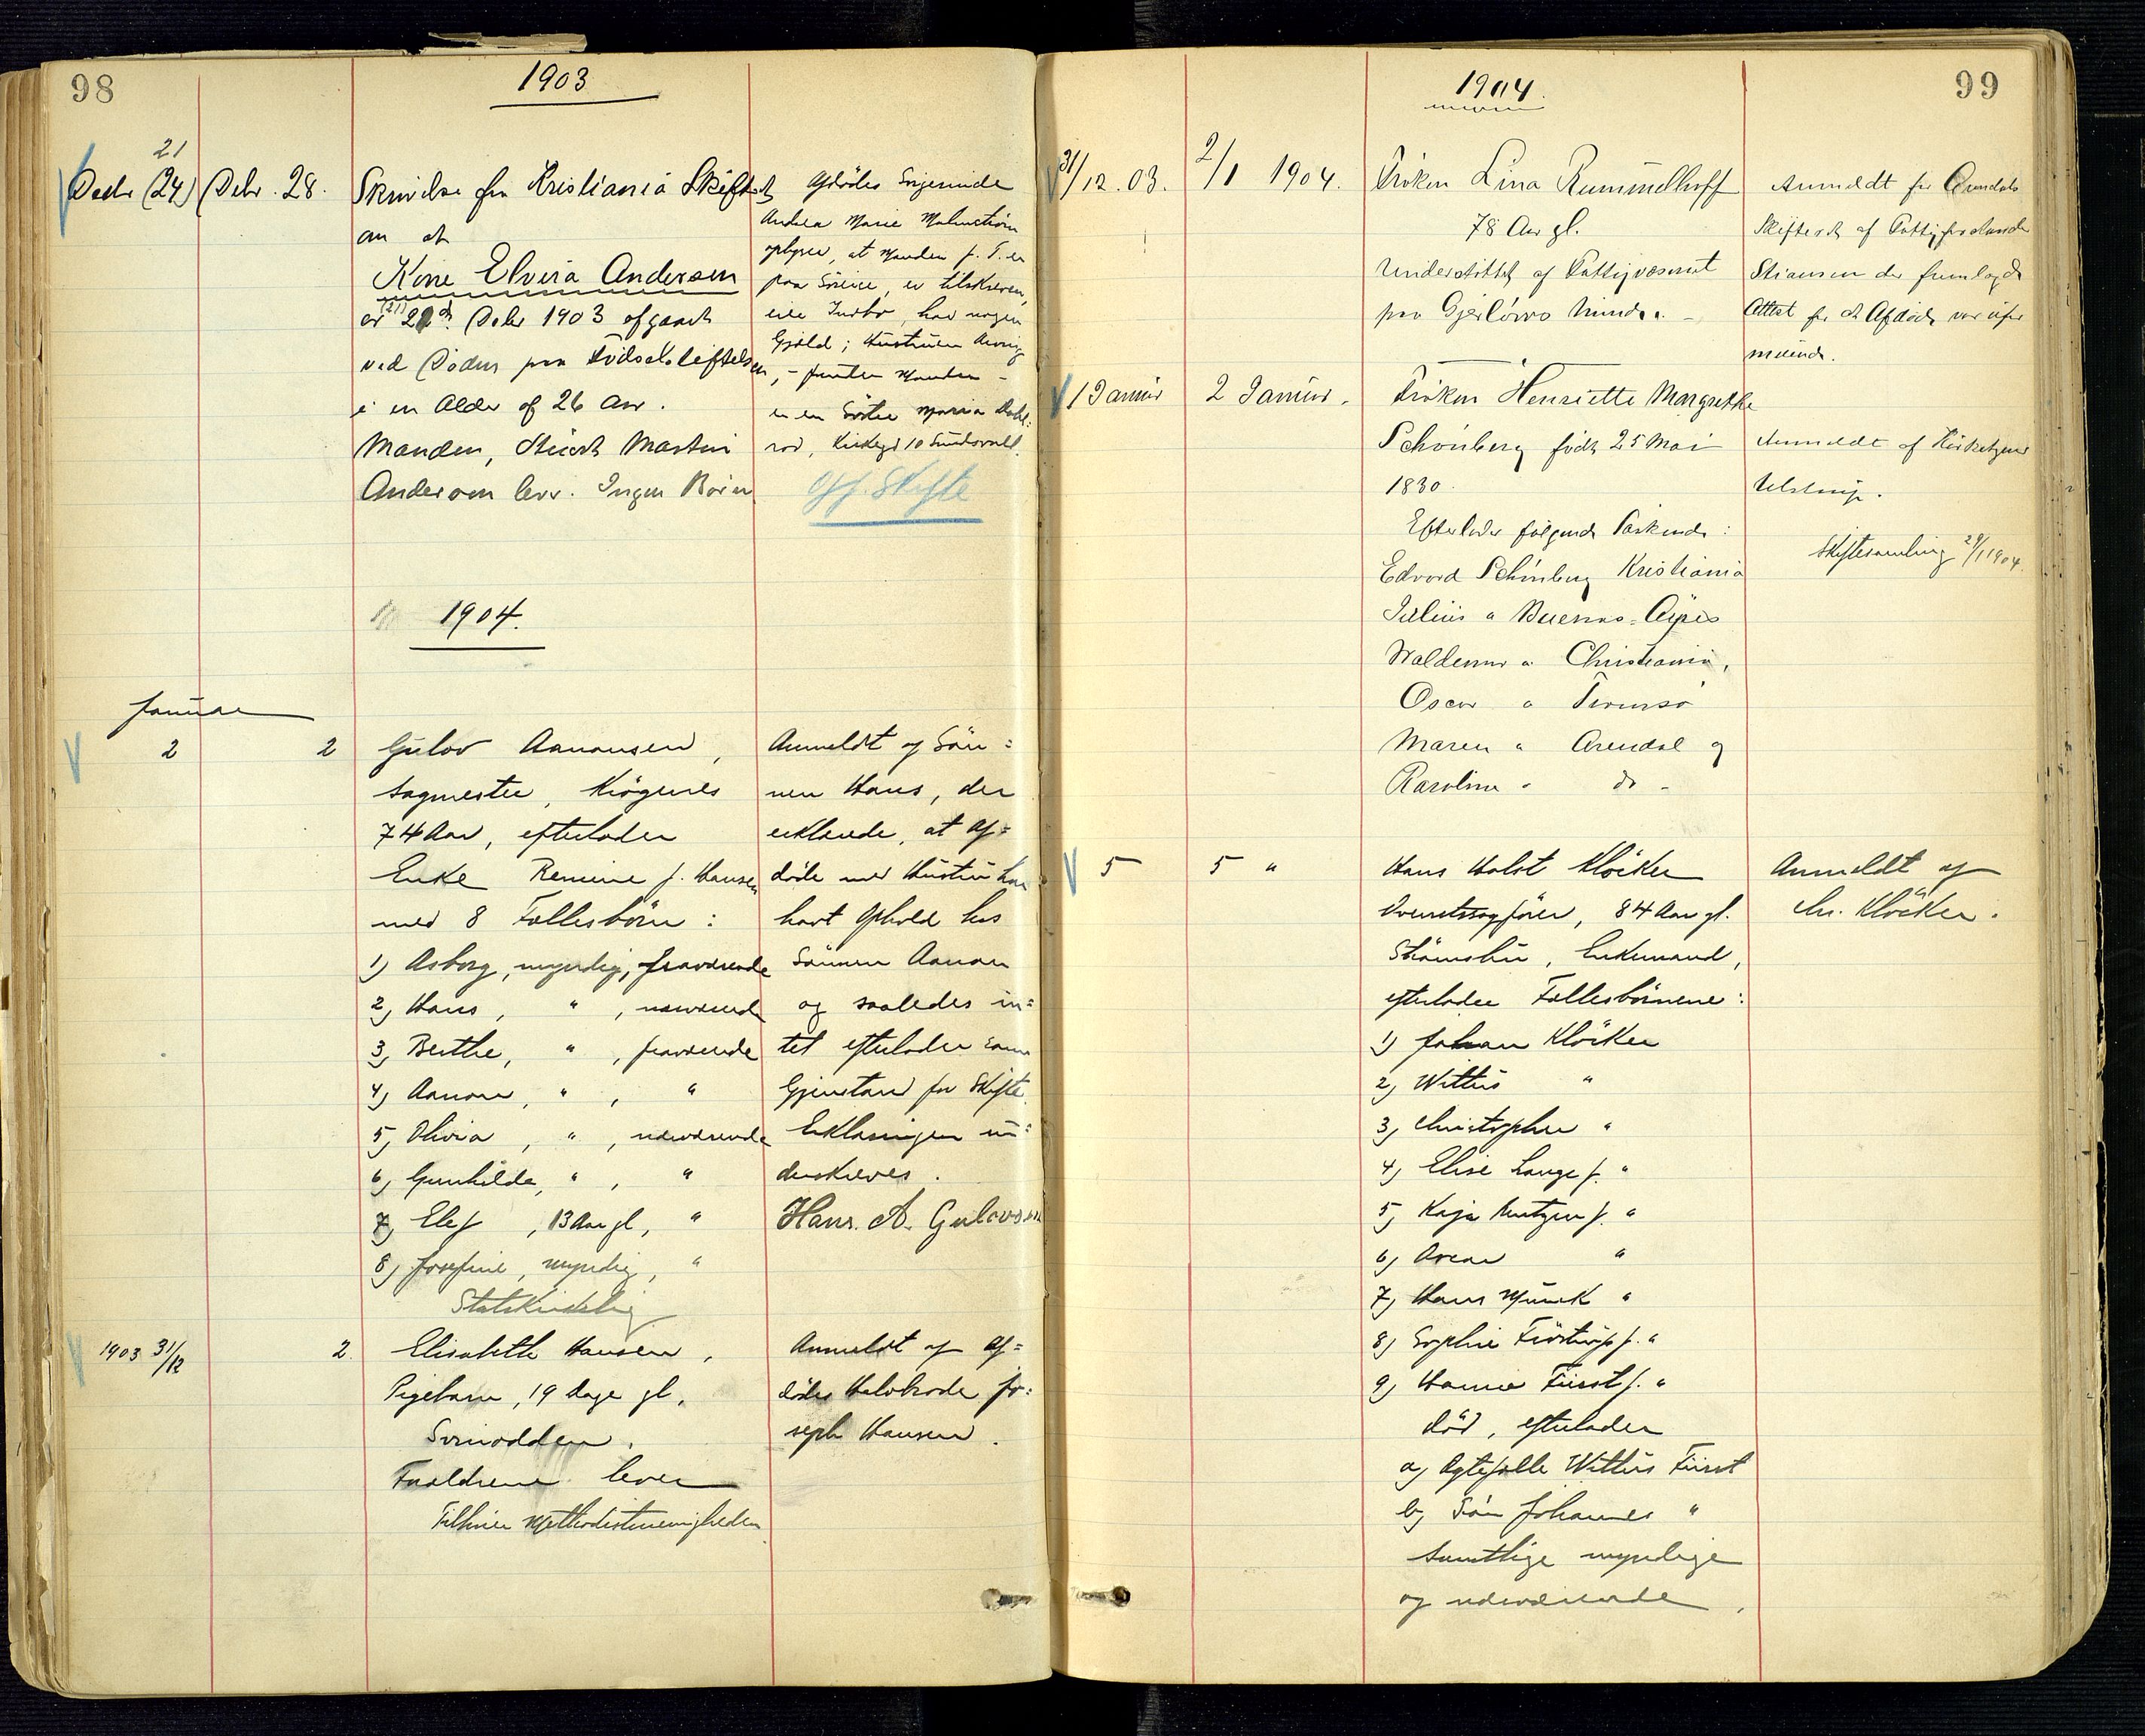 98
1903
21
Decbr (24) Debr. 28.
Skrivelse fra Kristiania Skifteret
om at
Kone Elvira Andersen
(21)
er 22d Debr 1903 afgaaet
ved Døden paa Fødselsstiftelsen
i en Alder af 26 Aar.
Manden, Stuert Martin
Andersen lever. Ingen Børn
Afdødes Svigerinde
Andrea Marie Malmstrøm
oplyser, at Manden p. T. er
paa Søreise, er tilskreven,
eier Indbo, har nogen
Gjæld; Hustruen Arving
, – foruden Manden –
er en Søster Maria
Kirkegd 10 Sundsvall.
Off. Skifte
1904.
Januar
2
2
Gulov Aanonsen,
Sagmester, Krøgenes
74 Aar, efterlader
Enke Remine f. Hansen
med 8 Fællesbørn:
1) Asborg, myndig, fraværende
2) Hans, " , nærværende
3) Berthe, " , fraværende
4) Aanon, " , "
5) Olivia, " , nærværende
6) Gunhilde, " , "
7) Elef, 13 Aar gl, "
8) Josefine, myndig, "
Statskirkelig
Anmeldt af Søn=
nen Hans, der
erklærede, at Af=
døde med Hustru har
havt Ophold hos
Sønnen Aanon
og saaledes in=
tet efterlader som
Gjenstand for Skifte.
Erklæringen un=
derskreves.
Hans. A. Gulovsen
1903 31/12
2.
Elisabeth Hansen,
Pigebarn, 19 Dage gl.
Svinodden.
Forældrene lever
Tilhører Methodistmenigheden
Anmeldt af Af=
dødes Halvbroder Jo=
seph Hansen.
99
1904.
31/12. 03.
2/1 1904.
Frøken Lina Rummelhoff
78 Aar gl.
Understøttet af Fattigvæsenet
paa Gjerløws Minde. –
Anmeldt for Arendals
Skifteret af Fattigforstander
Stiansen der fremlagde
Attest for at Afdøde var ufor
muende.
1 Januar
2 Januar.
Frøken Henriette Margrethe
Schönberg født 25 Mai
1830.
Efterlader følgende Søskende:
Edvard Schönberg Kristiania
Julius " Buenos-Ayres
Waldemar " Christiania,
Oscar " Tromsø
Maren " Arendal og
Karoline " do -
Anmeldt af Kirketjener
Ulstrup.
Skiftesamling 29/1 1904.
5
5 "
Hans Holst Kløcker
Overretssagfører, 84 Aar gl.
Strømsbu, Enkemand,
efterlader Fællesbørnene:
1) Johan Kløcker
2) Wittus "
3) Christopher "
4) Elise Lange f. "
5) Kaja Rentzen f. "
6) Oscar "
7) Hans Munck "
8) Sophie Finstrup f. "
9) Hanna Fürst f. "
død, efterlader
a) Ægtefælle Wittus Fürst
b) Søn Johannes "
Samtlige myndige
og nærværende.
Anmeldt af
Chr. Kløcker.